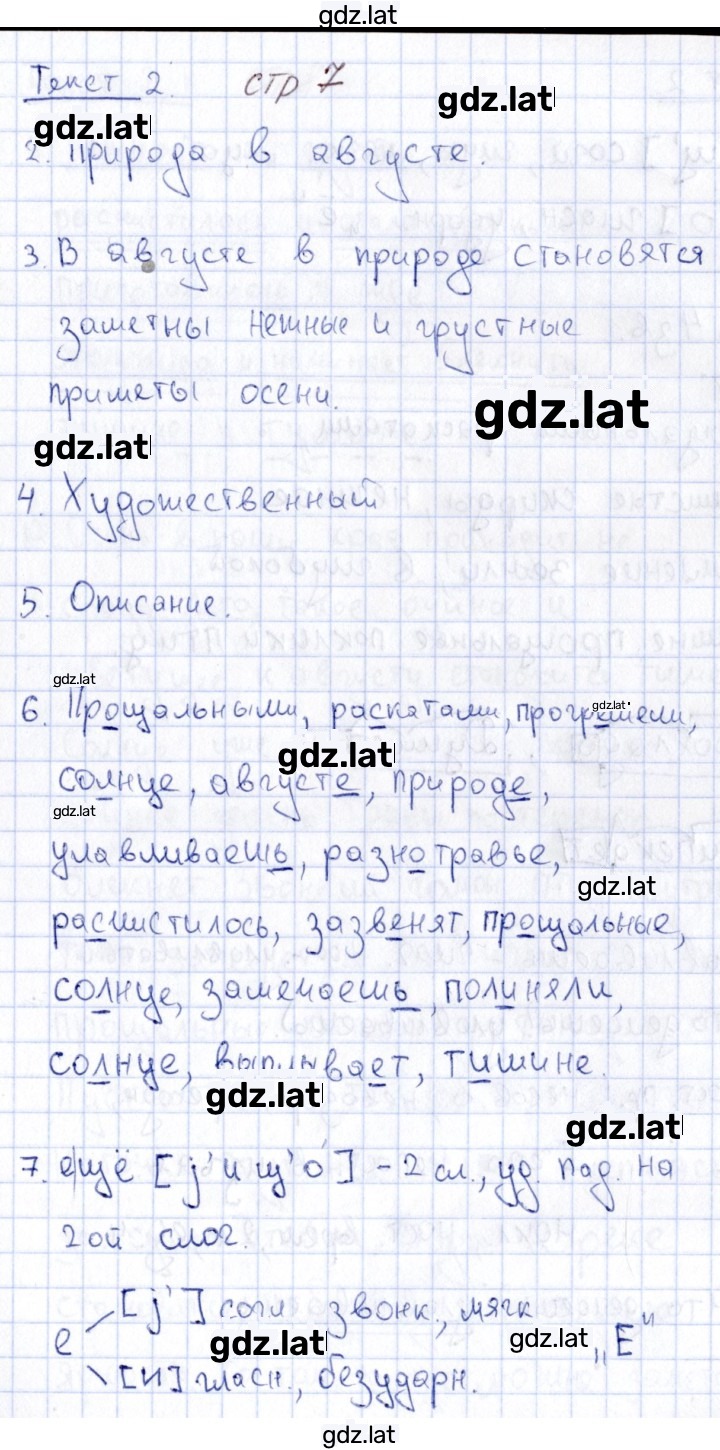 gdz.lat
Текст 2. стр 7
gdz.lat
gdz.lat
2. Природа в августе.
3. В августе в природе становятся
заметны нежные и грустные
приметы осени.
gdz.lat
gdz.lat
4. Художественный
5. Описание.
gdz.lat
6. Прощальными, раскатами, прогремели,
gdz.lat
gdz.lat
солнце, августе, природе,
gdz.lat
улавливаешь, разнотравье,
gdz.lat
расчистилось, зазвенят, прощальные,
солнце, замечаешь, полиняли,
солнце, выплывает, тишине.
gdz.lat
gdz.lat
7. ещё [j'ищ'о́] - 2 сл., уд. пад. на
2ой слог.
е [j'] согл звонк., мягк
gdz.lat
gdz.lat
„Е"
[и] гласн., безударн.
gdz.lat